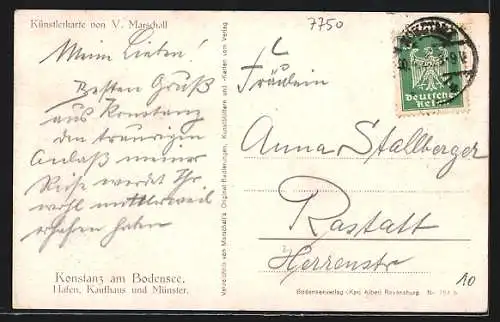 Künstlerkarte von V. Marschall
7750
Meine Lieben!
Besten Gruß
aus Konstanz
den traurigen
Anlaß meiner
Reise werdet Ihr
wohl mittlerweil
erfahren haben
Konstanz am Bodensee.
Hafen, Kaufhaus und Münster.
Verzeichnis von Marschall's Original-Radierungen, Kunstblättern und -karten vom Verlag
Deutsches
Reich
Fräulein
Anna Stallberger
Rastatt
Herrenstr
10
Bodenseeverlag (Karl Alber) Ravensburg.